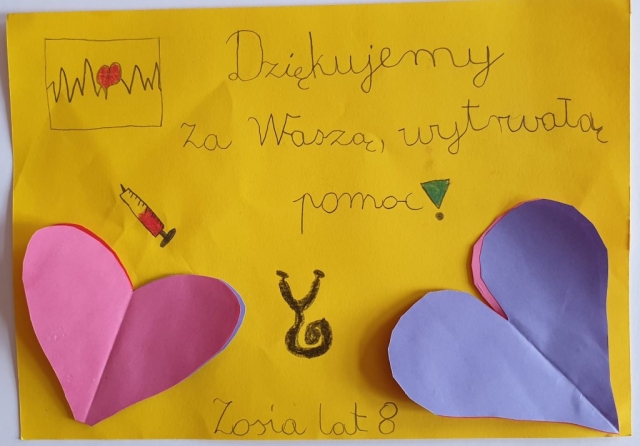 Dziękujemy
za Waszą, wytrwałą
pomoc!
Zosia lat 8